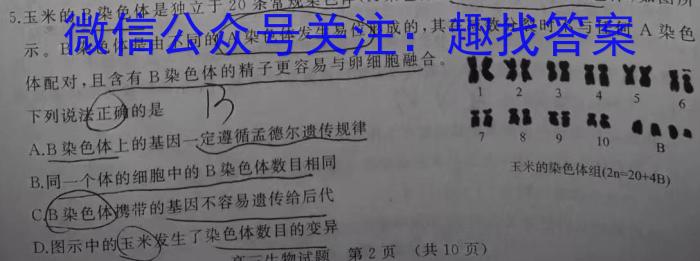 5.玉米的B染色体是独立于20条常规染色体
微信公众号关注：趣找答案
体配对,且含有B染色体的精子更容易与卵细胞融合。
下列说法正确的是
B
A.B染色体上的基因一定遵循孟德尔遗传规律
B.同一个体的细胞中的B染色体数目相同
C.B染色体携带的基因不容易遗传给后代
D.图示中的玉米发生了染色体数目的变异
1 2 3 4 5 6
7 8 9 10 B
玉米的染色体组(2n=20+4B)
高三生物试题 第2页 （共10页）